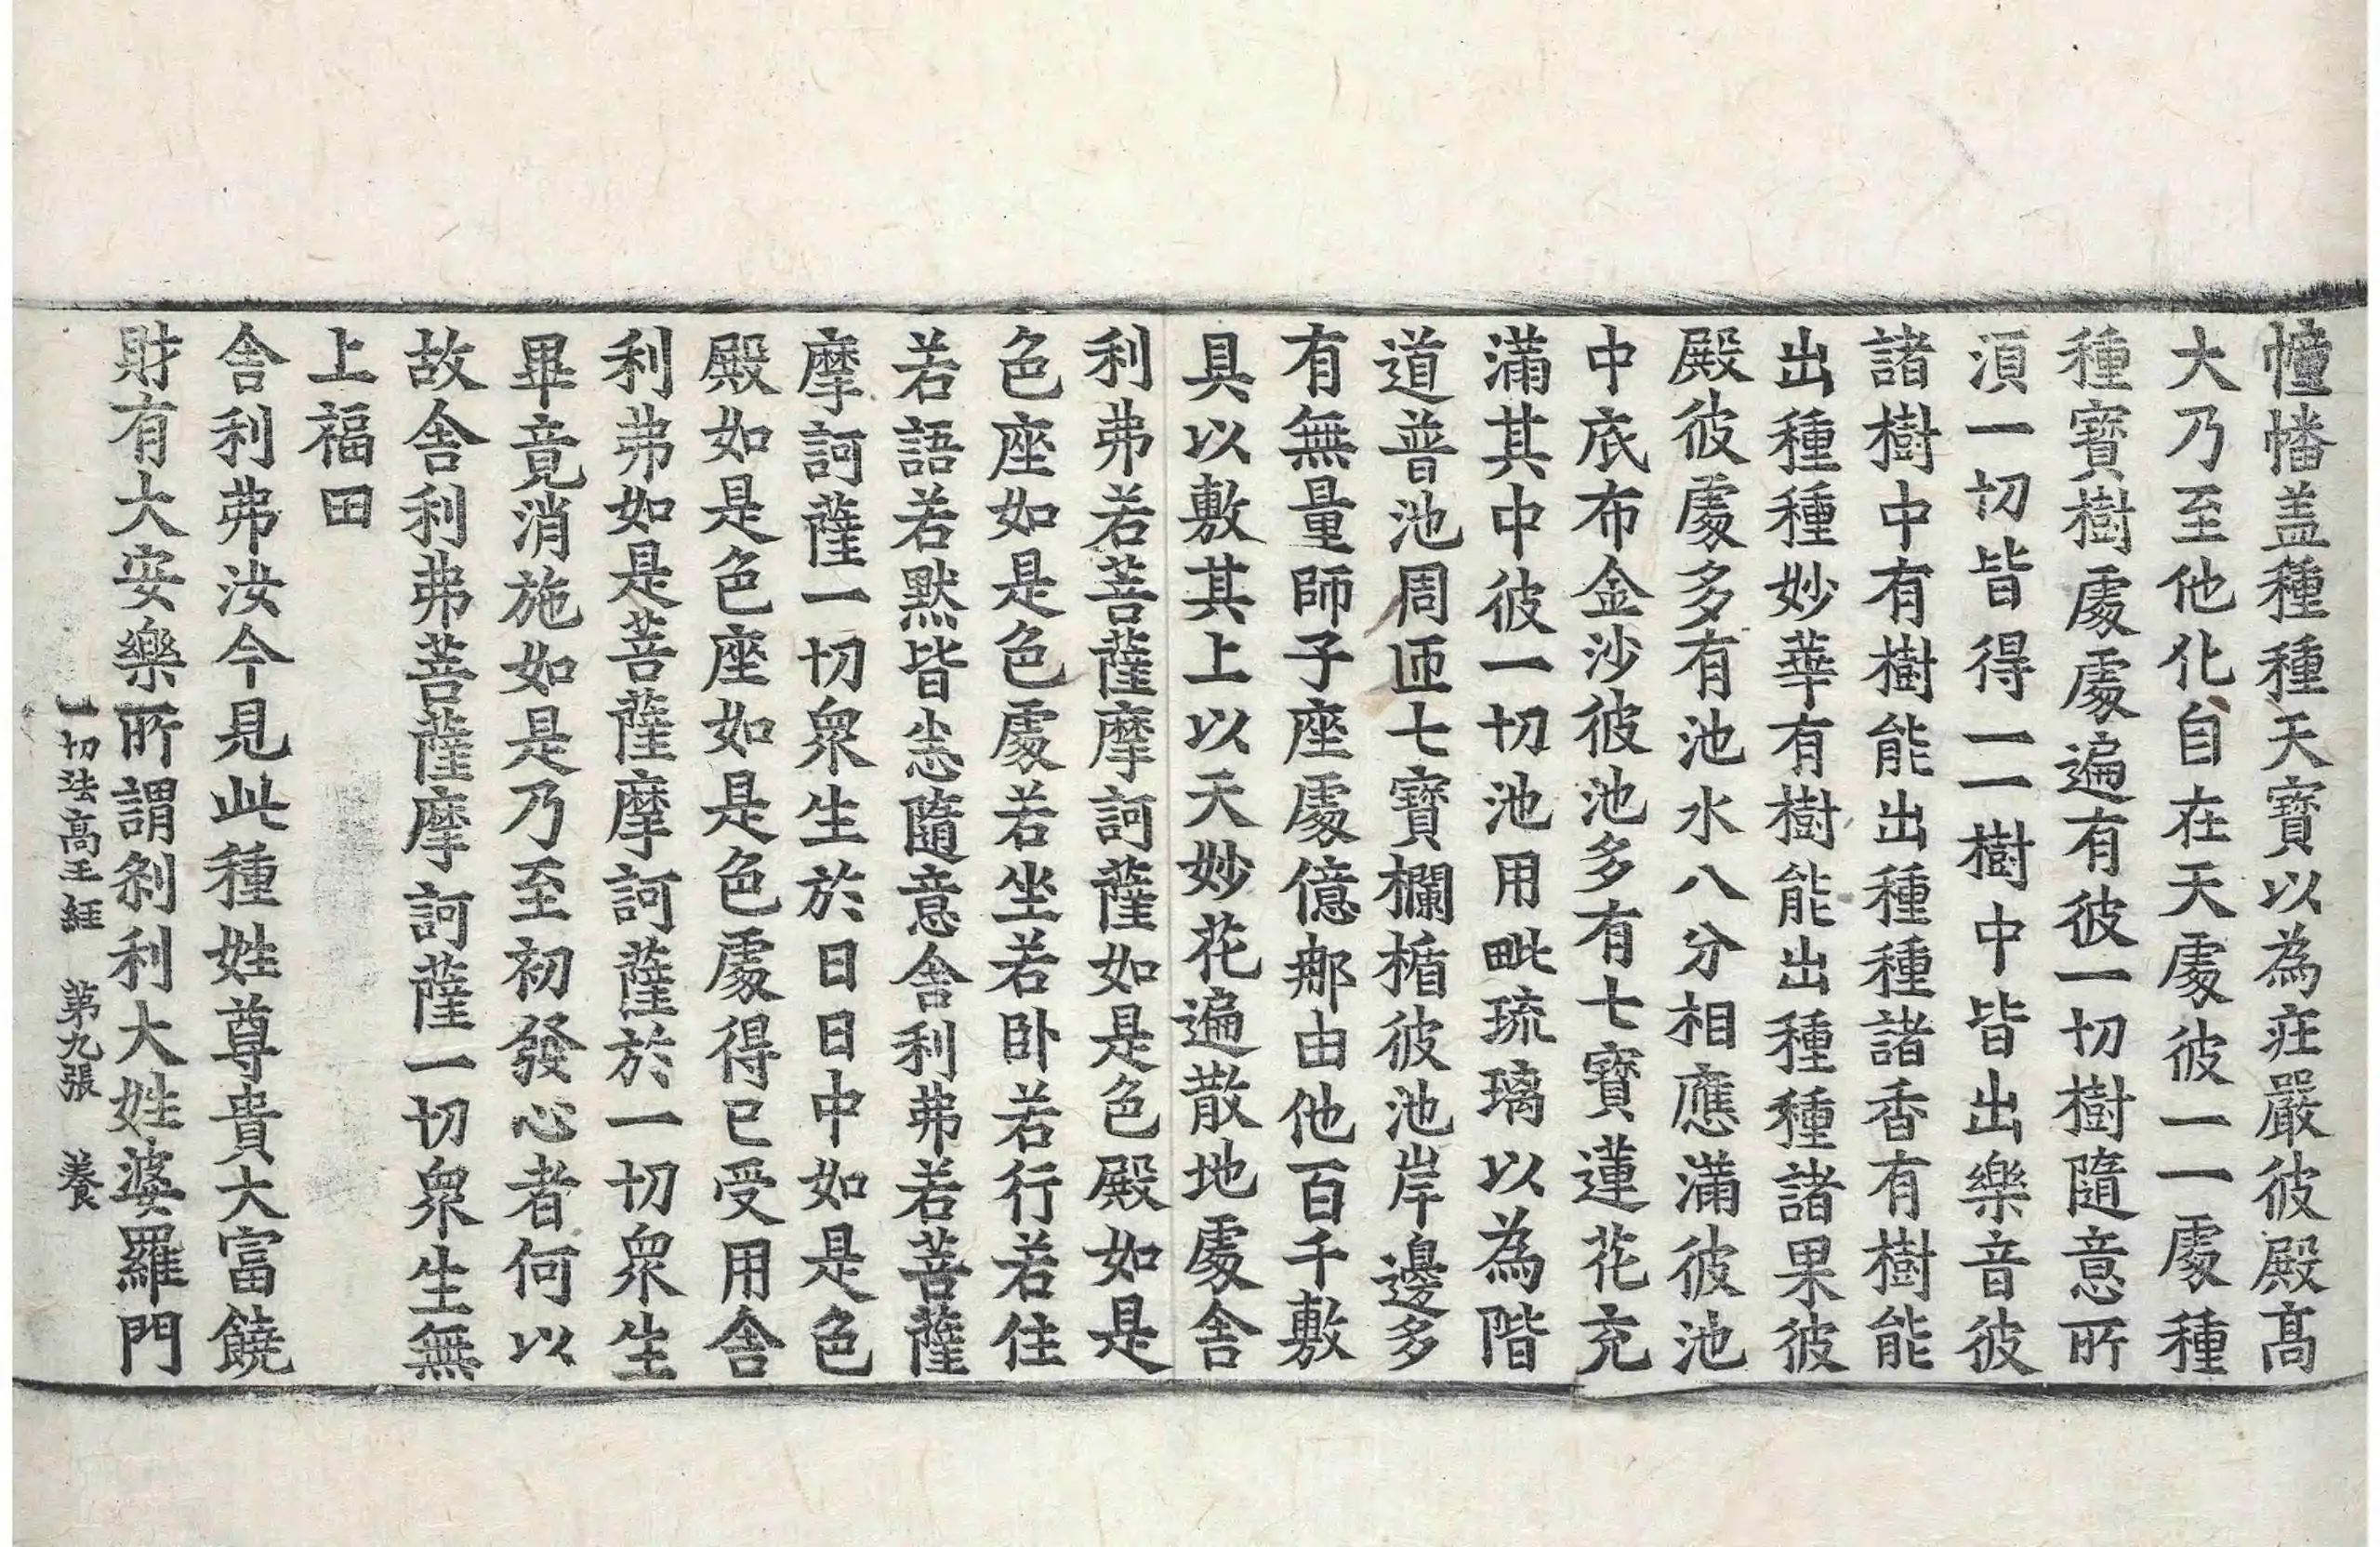 幢幡盖種種天寶以為疘嚴彼殿髙
大乃至他化自在天處彼一一處種
種寶樹處處遍有彼一切樹隨意所
湏一切皆得一一樹中皆出樂音彼
諸樹中有樹能出種種諸香有樹能
出種種妙華有樹能出種種諸果彼
殿彼處多有池水八分相應滿彼池
中底布金沙彼池多有七寶蓮花充
滿其中彼一切池用毗琉璃以為階
道普池周匝七寶欄楯彼池岸邊多
有無量師子座處億那由他百千敷
具以敷其上以天妙花遍散地處舍
利弗若菩薩摩訶薩如是色殿如是
色座如是色處若坐若卧若行若住
若語若默皆悉隨意舍利弗若菩薩
摩訶薩一切衆生於日日中如是色
殿如是色座如是色處得已受用舍
利弗如是菩薩摩訶薩於一切衆生
畢竟消施如是乃至初發心者何以
故舍利弗菩薩摩訶薩一切衆生無
上福田
舍利弗汝今見此種姓尊貴大富饒
財有大安樂所謂刹利大姓婆羅門
一切法髙王經 第九張 養